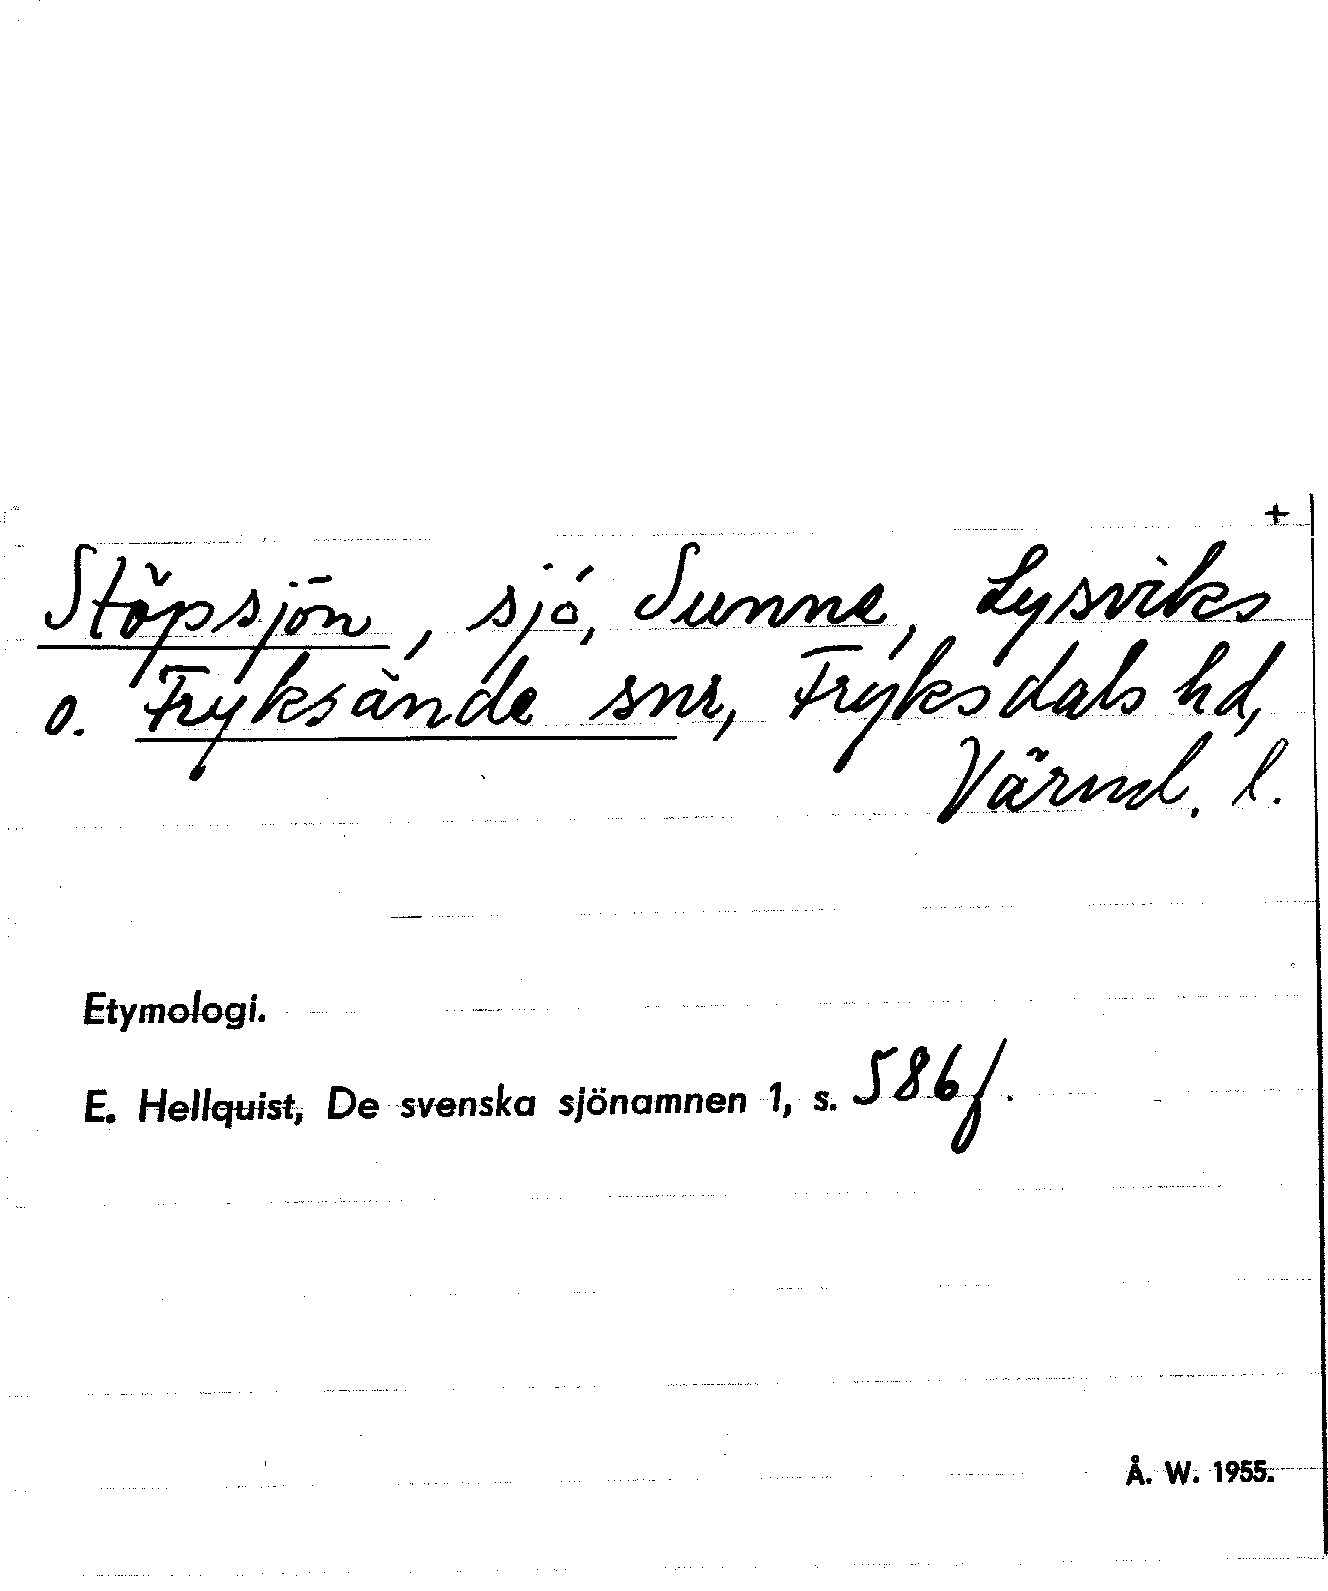 +
Stöpsjön, sjö, Sunne, Lysviks
o. Fryksände snr, Fryksdals hd,
Värml. l.
Etymologi.
E. Hellquist, De svenska sjönamnen 1, s. 586f.
Å. W. 1955.